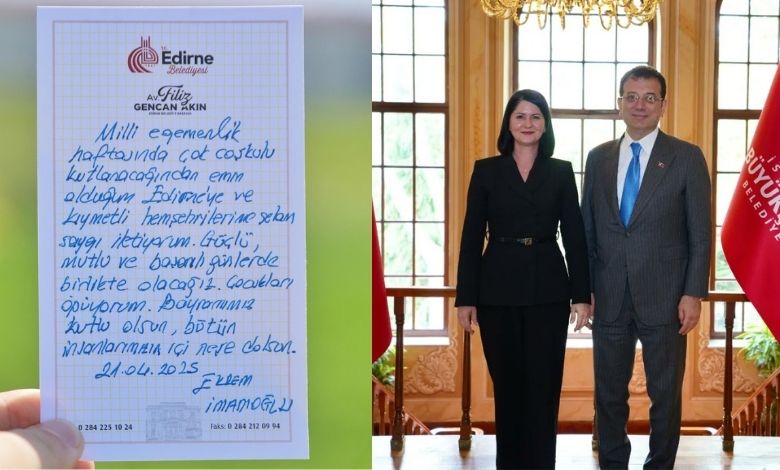 T.C.
Edirne
Belediyesi
Av. Filiz
GENCAN AKIN
EDİRNE BELEDİYE BAŞKANI
Milli egemenlik
haftasında çok coşkulu
kutlanacağından emin
olduğum Edirne'ye ve
kıymetli hemşehrilerime selam
saygı iletiyorum. Güçlü,
mutlu ve başarılı günlerde
birlikte olacağız. Çocukları
öpüyorum. Bayramımız
kutlu olsun, bütün
insanlarımızın içi neşe dolsun.
21.04.2025
Ekrem
İmamoğlu
0 284 225 10 24
Faks: 0 284 212 09 94
İS
BÜYÜK
BELEDİYE